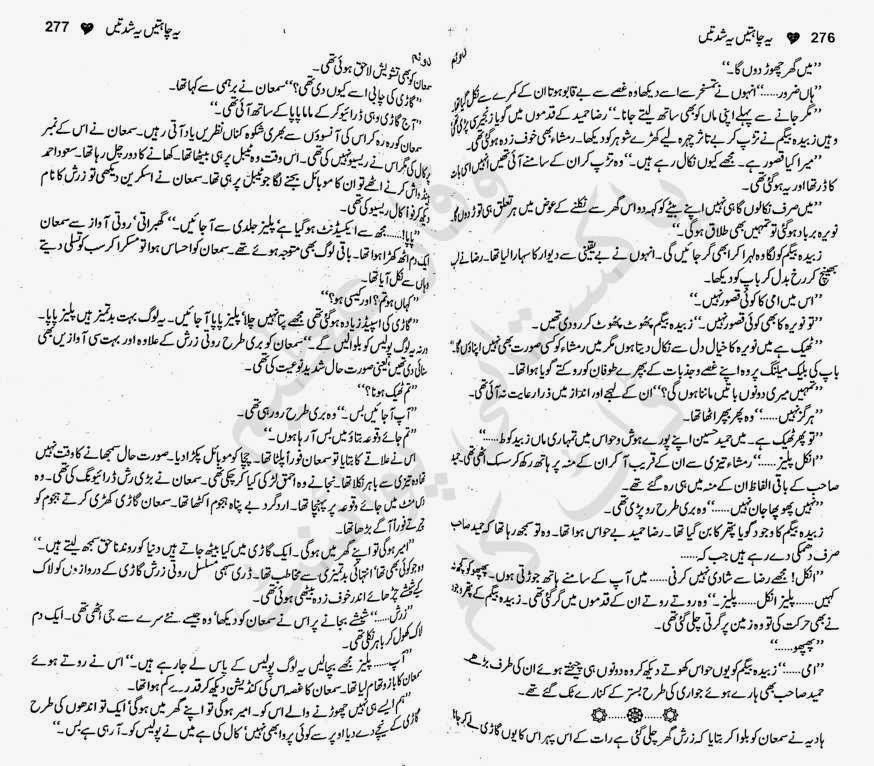 276 یہ چاہتیں یہ شدتیں
دوئم
’’میں گھر چھوڑ دوں گا۔‘‘
’’ہاں ضرور……‘‘ انہوں نے تمسخر سے اسے دیکھا وہ غصے سے بے قابو ہوتا ان کے کمرے سے نکل گیا تو
’’مگر جانے سے پہلے اپنی ماں کو بھی ساتھ لیتے جانا۔‘‘ رضا حمید کے قدموں میں گویا زنجیر سی پڑی تھی
وہیں زبیدہ بیگم نے تڑپ کر بے تاثر چہرہ لیے کھڑے شوہر کو دیکھا۔ رمشاء بھی خوف زدہ ہو گئی تھی۔
’’میرا کیا قصور ہے۔ مجھے کیوں نکال رہے ہیں۔‘‘ وہ تڑپ کر ان کے سامنے آئی تھیں انہیں اسی بات
کا ڈر تھا اور یہ ہو گئی تھی۔
’’میں صرف نکالوں گا ہی نہیں اپنے بیٹے کو کہہ دو اس گھر سے نکلنے کے عوض میں ہر تعلق ہی توڑ دوں گا
نویرہ برباد ہو گئی تو تمہیں بھی طلاق ہو گی۔‘‘
زبیدہ بیگم کو لگا وہ لہرا کر ابھی گر جائیں گی۔ انہوں نے بے یقینی سے دیوار کا سہارا لیا تھا۔ رضا نے لب
بھینچ کر رخ بدل کر باپ کو دیکھا۔
’’اس میں امی کا کوئی قصور نہیں۔‘‘
’’تو نویرہ کا بھی کوئی قصور نہیں۔‘‘ زبیدہ بیگم پھوٹ پھوٹ کر رو دی تھیں۔
’’ٹھیک ہے میں نویرہ کا خیال دل سے نکال دیتا ہوں مگر میں رمشاء کو کسی صورت بھی نہیں اپناؤں گا۔‘‘
باپ کی بلیک میلنگ پر وہ اپنے غصے و جذبات کے بپھرے طوفان کو روکتے گویا ہوا تھا۔
’’تمہیں میری دونوں باتیں ماننا ہوں گی؟‘‘ ان کے لہجے اور انداز میں ذرا رعایت نہ آئی تھی۔
’’ہرگز نہیں……‘‘ وہ پھر بپھر اٹھا تھا۔
’’تو پھر ٹھیک ہے۔ میں حمید حسین اپنے پورے ہوش و حواس میں تمہاری ماں زبیدہ کو ط……‘‘
’’انکل پلیز……‘‘ رمشاء تیزی سے ان کے قریب آ کر ان کے منہ پر ہاتھ رکھ کر سسک اٹھی تھی۔ حمید
صاحب کے باقی الفاظ ان کے منہ میں ہی رہ گئے تھے۔
’’نہیں پھوپھا جان نہیں……‘‘ وہ بری طرح رو پڑی تھی۔
زبیدہ بیگم کا وجود گویا پتھر کا بن گیا تھا۔ رضا حمید بے حواس ہوا تھا۔ وہ تو سمجھ رہا تھا کہ حمید صاحب
صرف دھمکی دے رہے ہیں جب کہ……
’’انکل! مجھے رضا سے شادی نہیں کرنی…… میں آپ کے سامنے ہاتھ جوڑتی ہوں۔ پھپھو کو کچھ نہ
کہیں…… پلیز انکل…… پلیز۔‘‘ وہ روتے روتے ان کے قدموں میں گر گئی تھی۔ زبیدہ بیگم کے پتھر وجود
نے بھی حرکت کی تو وہ زمین پر گرتی چلی گئی تھی۔
’’پھپھو……‘‘
’’امی……‘‘ زبیدہ بیگم کو یوں حواس کھوتے دیکھ کر وہ دونوں ہی چیختے ہوئے ان کی طرف بڑھے
حمید صاحب بھی ہارے ہوئے جواری کی طرح بستر کے کنارے ٹک گئے تھے۔
ہادیہ نے سمعان کو بلوا کر بتایا کہ زرش گھر چلی گئی ہے رات کے اس پہر اس کا یوں گاڑی لے کر جانا
یہ چاہتیں یہ شدتیں 277
دوئم
سمعان کو بھی تشویش لاحق ہوئی تھی۔
’’گاڑی کی چابی اسے کیوں دی تھی؟‘‘ سمعان نے برہمی سے کہا تھا۔
’’آج گاڑی وہی ڈرائیو کر کے ماما پاپا کے ساتھ آئی تھی۔‘‘
سمعان کو رہ رہ کر اس کی آنسوؤں سے بھری شکوہ کناں نظریں یاد آتی رہیں۔ سمعان نے اس کے نمبر
پر کال کی مگر اس نے ریسیو نہیں کی تھی۔ اس وقت وہ ٹیبل پر ہی بیٹھا تھا۔ کھانے کا دور چل رہا تھا۔ سعود احمد
ہینڈ واش کرنے اٹھے تو ان کا موبائل بجنے لگا جو ٹیبل پر ہی تھا۔ سمعان نے اسکرین دیکھی تو زرش کا نام
دیکھ کر فوراً کال ریسیو کی تھی۔
’’پاپا!…… مجھ سے ایکسیڈنٹ ہو گیا ہے‘ پلیز جلدی سے آ جائیں۔‘‘ گھبرائی‘ روتی آواز سے سمعان
ایک دم اٹھ کھڑا ہوا تھا۔ باقی لوگ بھی متوجہ ہوئے تھے۔ سمعان کو احساس ہوا تو مسکرا کر سب کو تسلی دیتے
وہاں سے نکل آیا تھا۔
’’کہاں ہو تم؟ اور کیسی ہو؟‘‘
’’گاڑی کی اسپیڈ زیادہ ہو گئی تھی مجھے پتا نہیں چلا‘ پلیز پاپا آ جائیں۔ یہ لوگ بہت بدتمیز ہیں پلیز پاپا۔
ورنہ یہ لوگ پولیس کو بلوا لیں گے۔‘‘ سمعان کو بری طرح روتی زرش کے علاوہ اور بہت سی آوازیں بھی
سنائی دی تھیں‘ یعنی صورت حال شدید نوعیت کی تھی۔
’’تم ٹھیک ہو نا؟‘‘
’’آپ آ جائیں بس۔‘‘ وہ بری طرح رو رہی تھی۔
’’تم جائے وقوعہ بتاؤ میں بس آ رہا ہوں۔‘‘
اس نے علاقے کا بتایا تو سمعان فوراً پلٹا تھا۔ چچا کو موبائل پکڑا دیا۔ صورت حال سمجھانے کا وقت نہیں
تھا وہ تیزی سے باہر نکلا تھا۔ نجانے وہ احمق لڑکی کیا کر چکی تھی۔ سمعان نے بڑی رش ڈرائیونگ کی تھی۔ وہ
دس منٹ میں جائے وقوعہ پر پہنچا تھا۔ اردگرد بے پناہ ہجوم اکٹھا تھا۔ سمعان گاڑی کھڑی کرتے ہجوم کو
چیرتے فوراً آگے بڑھا تھا۔
’’امیر ہو گی تو اپنے گھر میں ہو گی۔ ایک گاڑی میں کیا بیٹھ جاتے ہیں دنیا کو روندنا حق سمجھ لیتے ہیں۔‘‘
وہ جو کوئی بھی تھا انتہائی بدتمیزی سے مخاطب تھا۔ ڈری سہمی مسلسل روتی زرش گاڑی کے دروازوں کو لاک
کیے شیشے چڑھائے اندر خوف زدہ بیٹھی ہوئی تھی۔
’’زرش……‘‘ شیشے بجانے پر اس نے سمعان کو دیکھا‘ وہ جیسے نئے سرے سے جی اٹھی تھی۔ ایک دم
لاک کھول کر باہر نکلی تھی۔
’’آپ…… پلیز مجھے بچا لیں یہ لوگ پولیس کے پاس لے جا رہے ہیں۔‘‘ اس نے روتے ہوئے
سمعان کا بازو تھام لیا تھا۔ سمعان کا غصہ اس کی کنڈیشن دیکھ کر قدرے کم ہوا تھا۔
’’ہم ایسے ہی نہیں چھوڑنے والے اس کو۔ امیر ہو گی تو اپنے گھر میں ہو گی‘ ایک تو اندھوں کی طرح
گاڑی کے نیچے دے دیا اوپر سے کوئی پروا بھی نہیں‘ کال کی ہے میں نے پولیس کو۔ آ رہی ہے بس۔‘‘